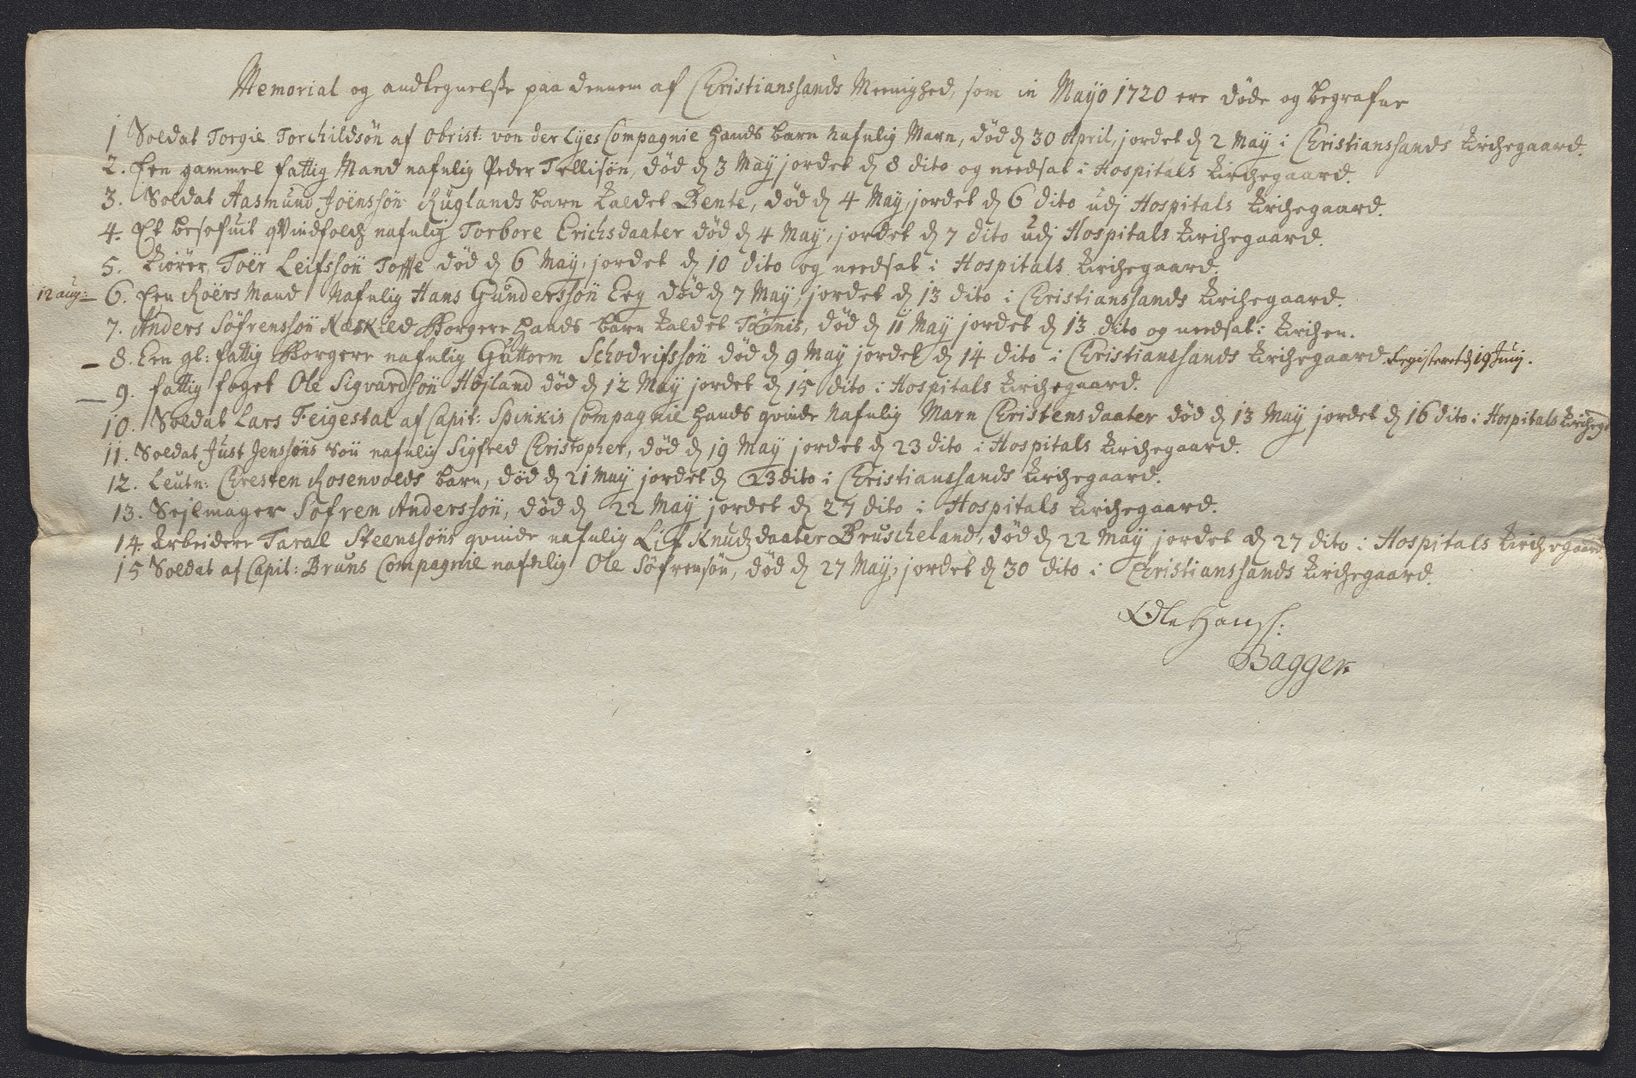 Memorial og andtegnelsse paa dennem af Christianssands Meenighed, som in Mayo 1720 ere døde og begrafne
1 Soldat Torgie Torchildsøn af Obrist: von der Lyes Compagnie hands barn nafnlig Marn, død d 30 April, jordet d 2 May i Christianssands Kirchegaard.
2. Een gammel fattig Mand nafnlig Peder Tellisøn, død d 3 May jordet d 8 dito og needsat i Hospitals Kirchegaard.
3. Soldat Aasmund Joensøn Ruglands barn kaldet Bente, død d 4 May, jordet d 6 dito udj Hospitals Kirchegaard.
4. Et besofuit qvindfolch nafnlig Torbore Erichsdaater død d 4 May, jordet d 7 dito udj Hospitals Kirchegaard.
5. Kiører, Toer Leifssøn Toffte død d 6 May, jordet d 10 dito og needsat i Hospitals Kirchegaard.
12 aug: 6. Een Roers Mand Nafnlig Hans Gunderssøn Eeg død d 7 May, jordet d 13 dito i Christianssands Kirchegaard.
7. Anders Søfrenssøn Næskled Borgere hands barn kaldet Tønnis, død d 11 May jordet d 13 dito og needsat i Kirchen.
8. Een gl: fattig Borgere nafnlig Guttorm Schodrifssøn død d 9 May jordet d 14 dito i Christianssands Kirchegaard. Registeret d 19 Junj.
9. fattig foget Ole Sigvardsøn Højland død d 12 May jordet d 15 dito i Hospitals Kirchegaard.
10. Soldat Lars Feigestal af Capit: Spinkis Compagnie hands qvinde Nafnlig Marn Christensdaater død d 13 May jordet d 16 dito i Hospitals Kirchegd
11. Soldat Just Jenssøns Søn nafnlig Sigfred Christopher, død d 19 May jordet d 23 dito i Hospitals Kirchegaard.
12. Leutn: Chresten Rosenvolds barn, død d 21 May jordet d 23 dito i Christianssands Kirchegaard.
13. Sejlmager Søfren Anderssøn, død d 22 May jordet d 27 dito i Hospitals Kirchegaard.
14. Arbeidere Taral Steenssøns qvinde nafnlig Lif Knudzdaater Bruscheland, død d 22 May jordet d 27 dito i Hospitals Kirchegaard
15 Soldat af Capit: Bruns Compagnie nafnlig Ole Søfrensøn, død d 27 May, jordet d 30 dito i Christianssands Kirchegaard.
Ole Hanss:
Bagger